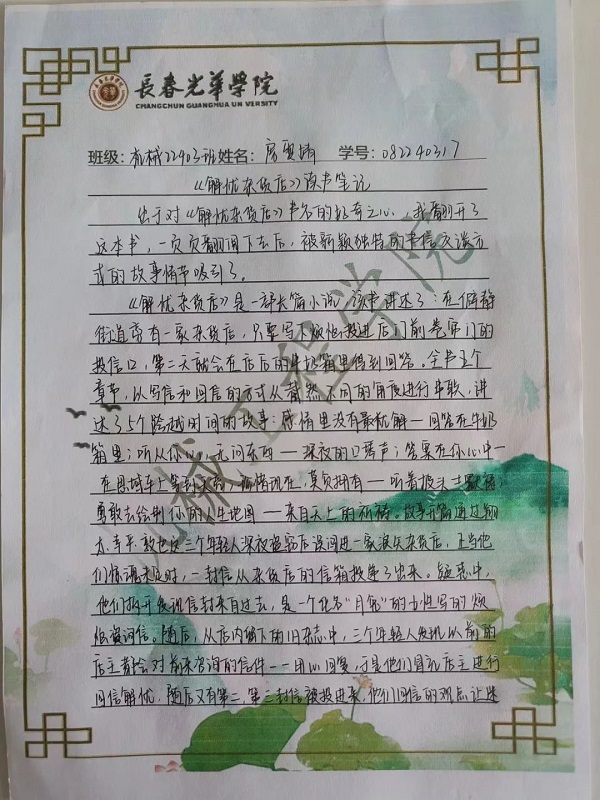 長春光華學院
CHANGCHUN GUANGHUA UNIVERSITY
班级：机械22403班 姓名： 学号：082240317
《解忧杂货店》读书笔记
出于对《解忧杂货店》书名的好奇之心，我翻开了
这本书，一页页翻阅下去后，被新颖独特的书信交谈方
式的故事情节吸引了。
《解忧杂货店》是一部长篇小说，该书讲述了：在僻静
街道旁有一家杂货店，只要写下烦恼投进店门前卷帘门的
投信口，第二天就会在店后的牛奶箱里得到回答。全书五个
章节，以写信和回信的方式从截然不同的角度进行串联，讲
述了5个跨越时间的故事：感情里没有最优解——回答在牛奶
箱里；听从你心，无问东西——深夜的口琴声；答案在你心中—
在思域车上等到天亮；珍惜现在，莫负拥有——听着披头士默祷
勇敢去绘制你的人生地图——来自天上的祈祷。故事开篇通过翔
太、幸平、敦也这三个年轻人深夜盗窃后误闯进一家浪矢杂货店，正当他
们惊魂未定时，一封信从杂货店的信箱投递了出来。疑惑中，
他们拆开发现信封来自过去，是一个化名“月兔”的女性写的烦
恼咨询信。随后，从店内留下的旧杂志中，三个年轻人发现以前的
店主都会对前来咨询的信件一一用心回复，于是他们冒充店主进行
回信解忧，随后又有第二、第三封信被投进来，他们回信的观点让迷
机械工程学院